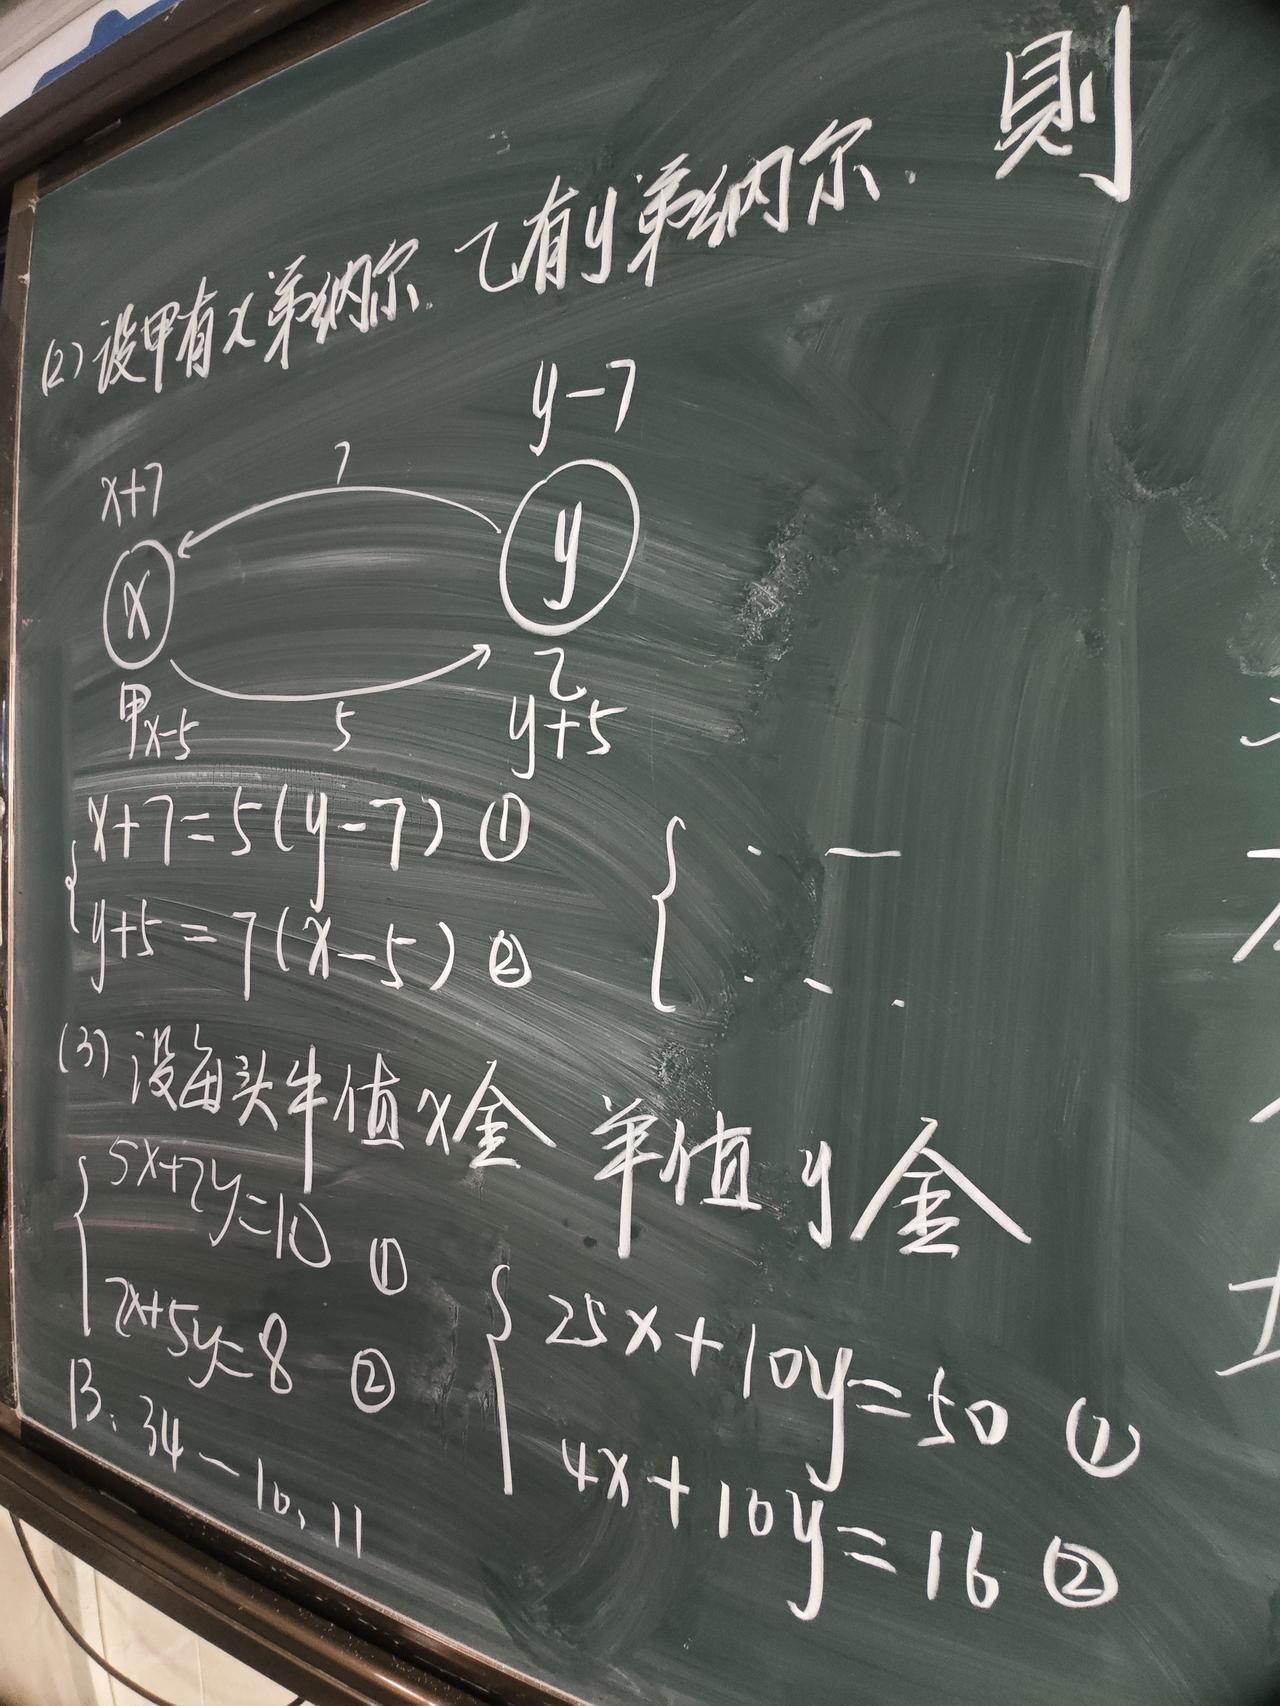 則
(2) 设甲有x第纳尔. 乙有y第纳尔.
y-7
x+7
7
x
y
甲
乙
x-5
5
y+5
x+7=5(y-7) ①
y+5=7(x-5) ②
(3) 设每头牛值x金 羊值y金
5x+2y=10 ①
2x+5y=8 ②
25x+10y=50 ①
4x+10y=16 ②
B. 34-10. 11